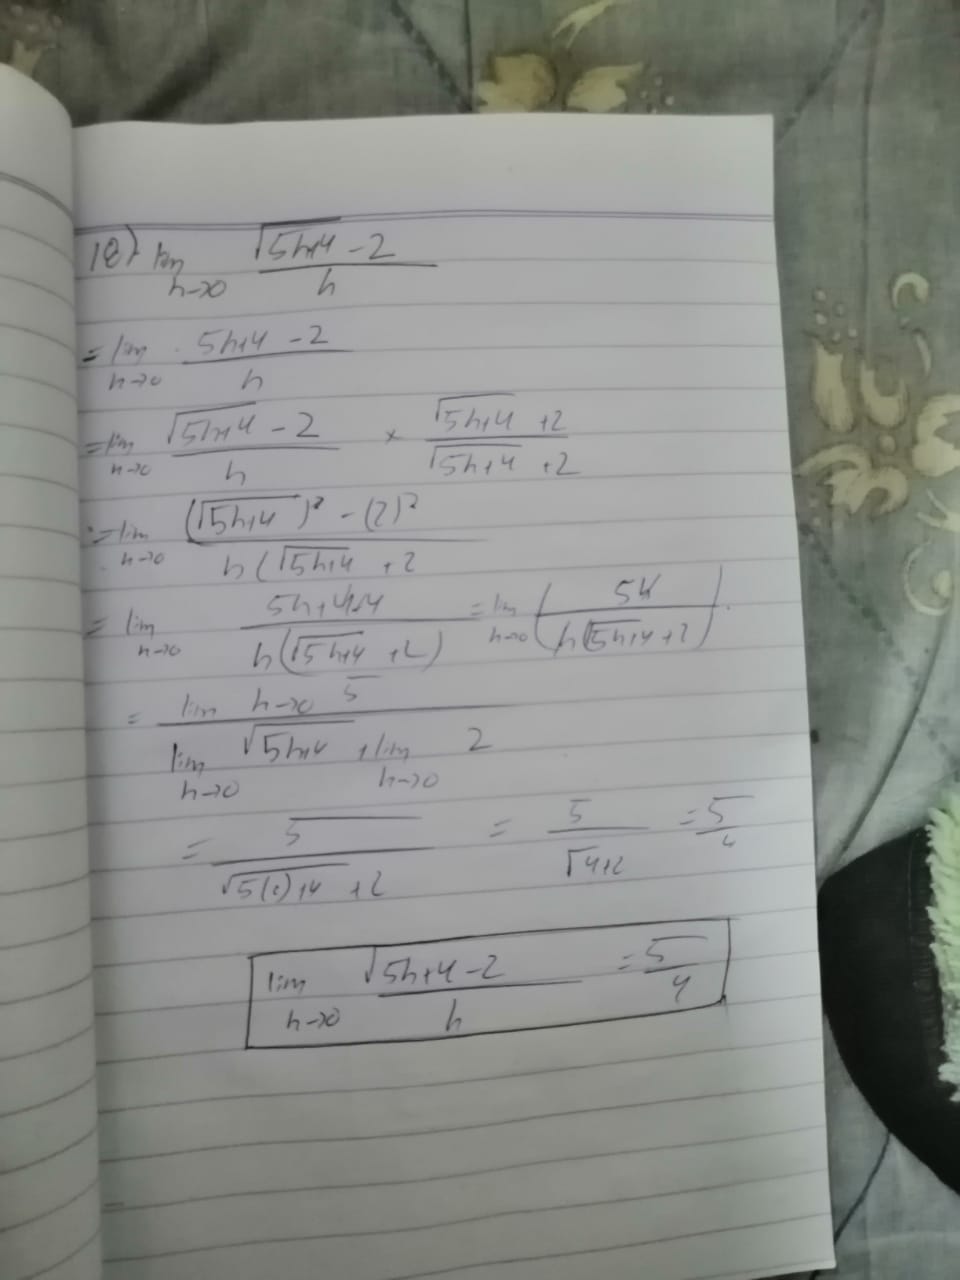 18) lim h→0 √5h+4 - 2 / h
= lim h→0 5h+4 - 2 / h
= lim h→0 √5h+4 - 2 / h × √5h+4 + 2 / √5h+4 + 2
= lim h→0 (√5h+4)² - (2)² / h(√5h+4 + 2
= lim h→0 5h+4-4 / h(√5h+4 + 2) = lim h→0 (5h / h(√5h+4 + 2)
= lim h→0 5 / lim h→0 √5h+4 + lim h→0 2
= 5 / √5(0)+4 + 2 = 5 / √4+2 = 5/4
lim h→0 √5h+4 - 2 / h = 5/4